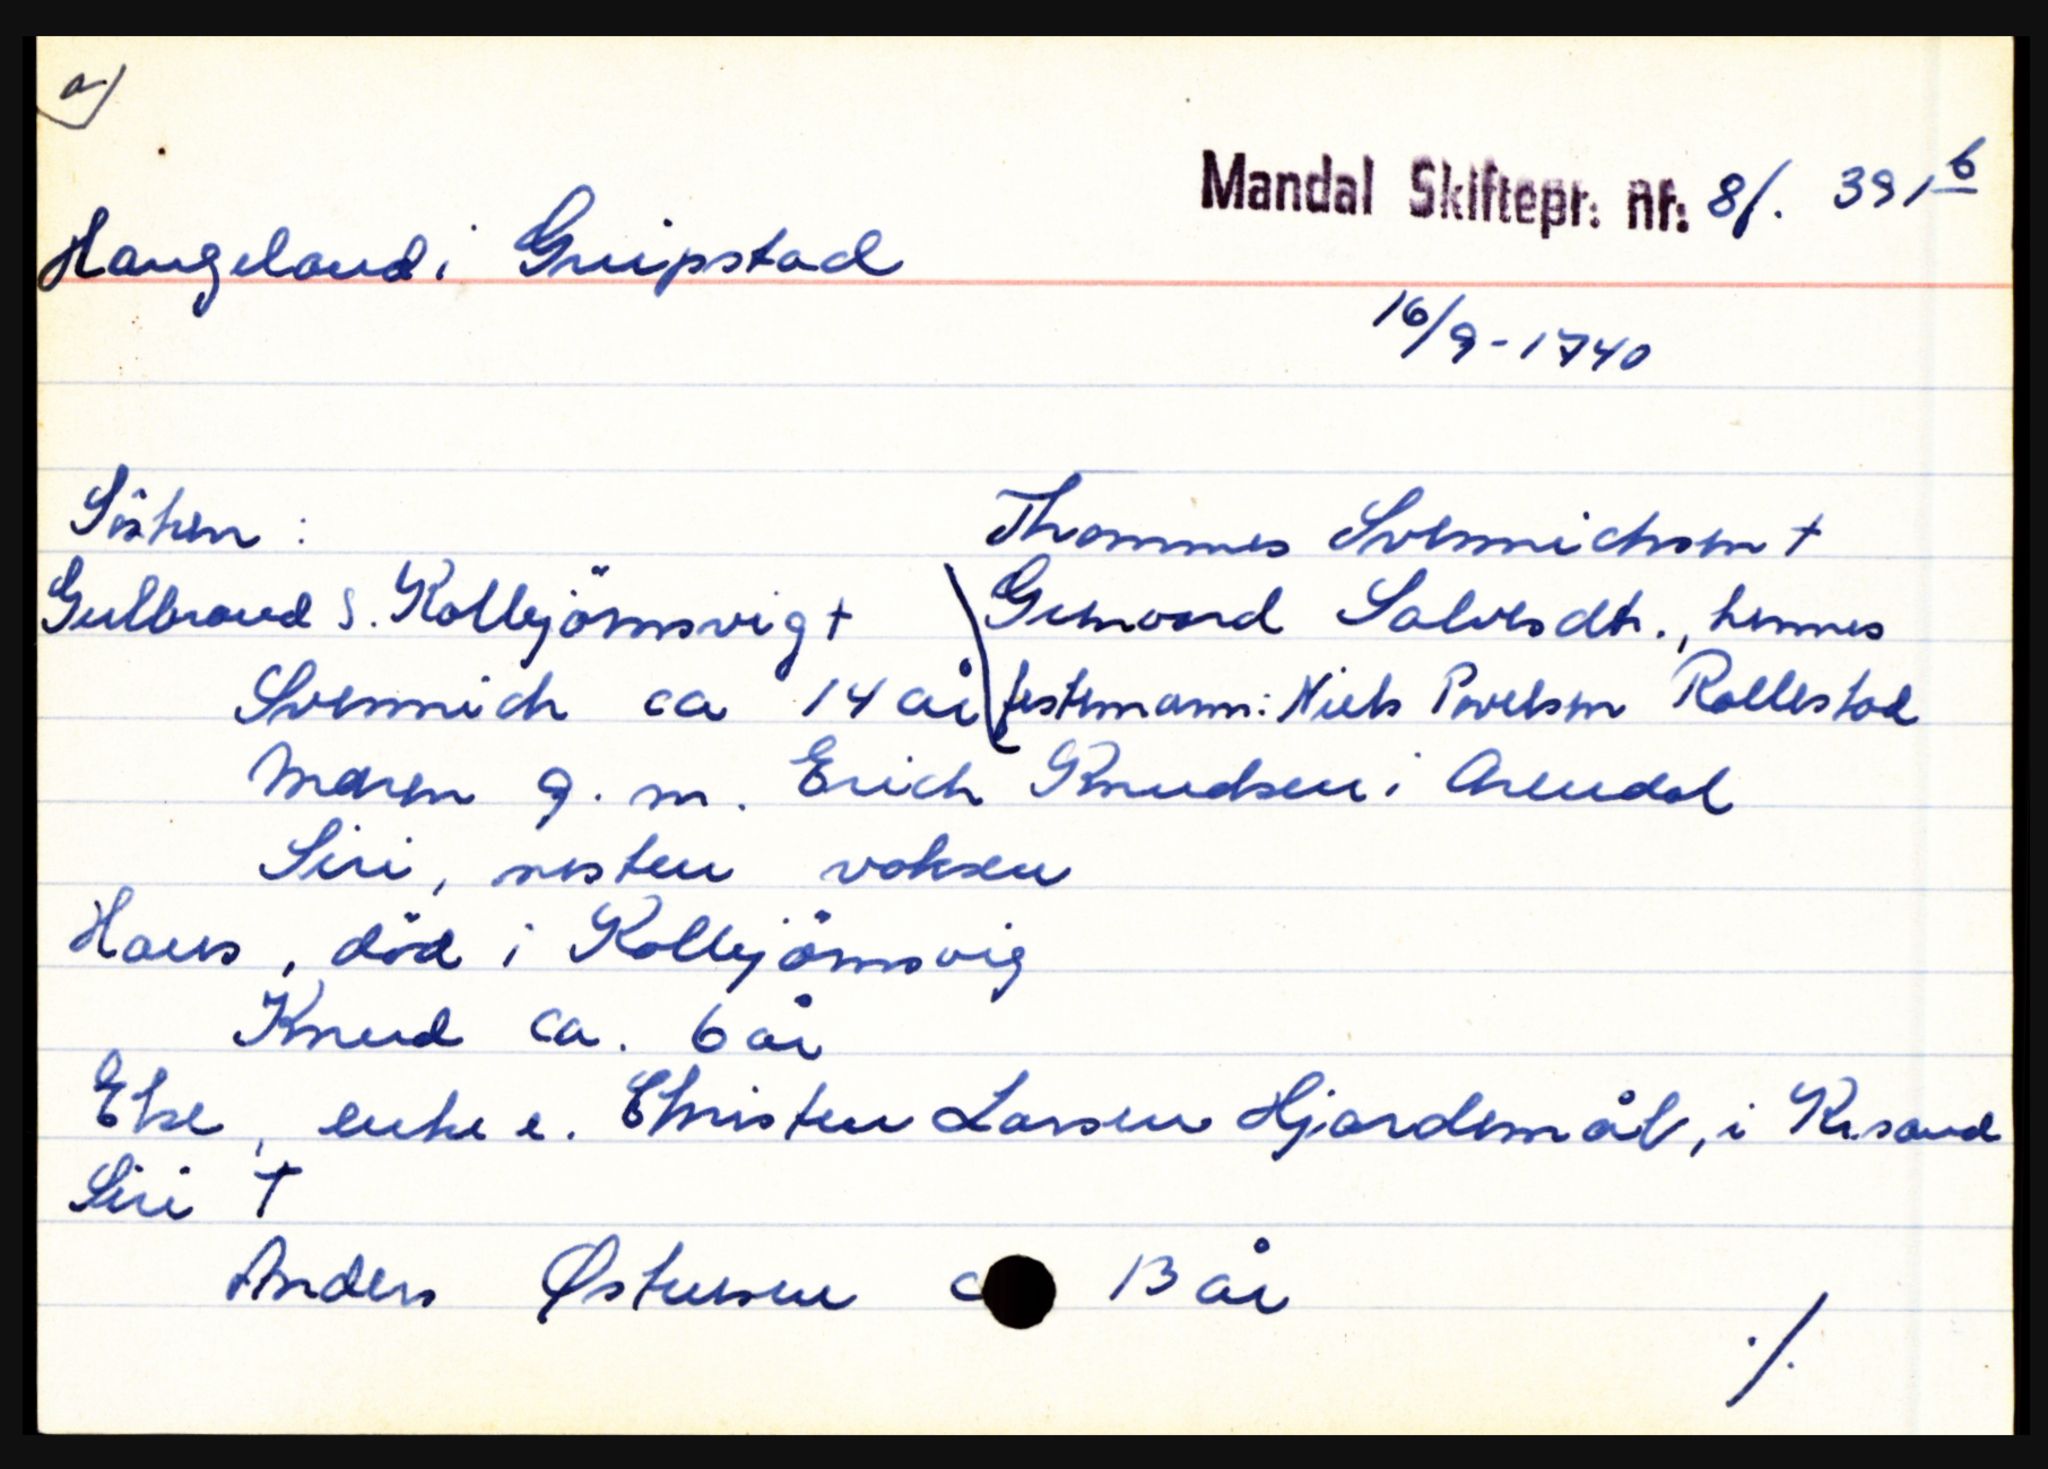 a)
Mandal Skiftepr. nr. 8/. 391 b
Haugeland i Greipstad
16/9-1740
Søsken : Thommes Svennichsen †
Gulbrand S. Kolbjörnsvig † Gunvord Salvesdtr., hennes
Svennich ca 14 år festemann: Niels Povelsen Rollestad
Maren g. m. Erich Knudsen i Arendal
Siri, nesten voksen
Hans, död i Kolbjörnsvig
Knud ca. 6 år
Else, enke e. Christen Larsen Hjardemål, i Kr.sand
Siri †
Anders Østensen c 13 år
./.